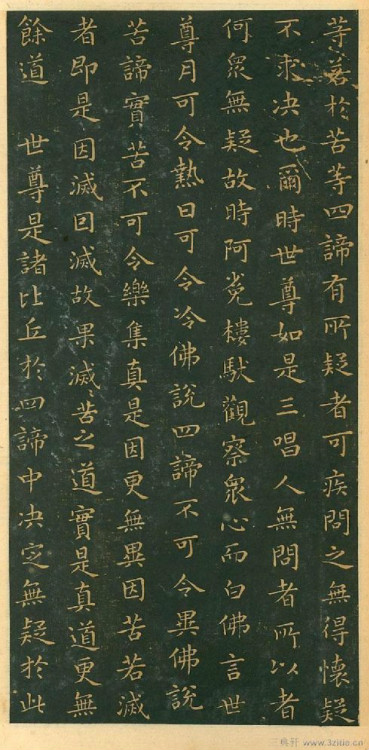 等若於苦等四諦有所疑者可疾問之無得懷疑
不求决也爾時世尊如是三唱人無問者所以者
何衆無疑故時阿㝹樓馱觀察衆心而白佛言世
尊月可令熱日可令冷佛說四諦不可令異佛說
苦諦實苦不可令樂集真是因更無異因苦若滅
者即是因滅因滅故果滅〻苦之道實是真道更無
餘道 世尊是諸比丘於四諦中决定無疑於此